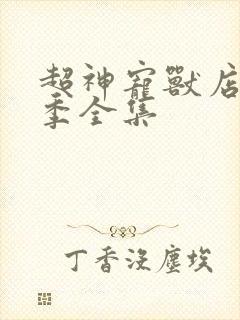 超神寵獸店
季全集
丁香沒塵埃